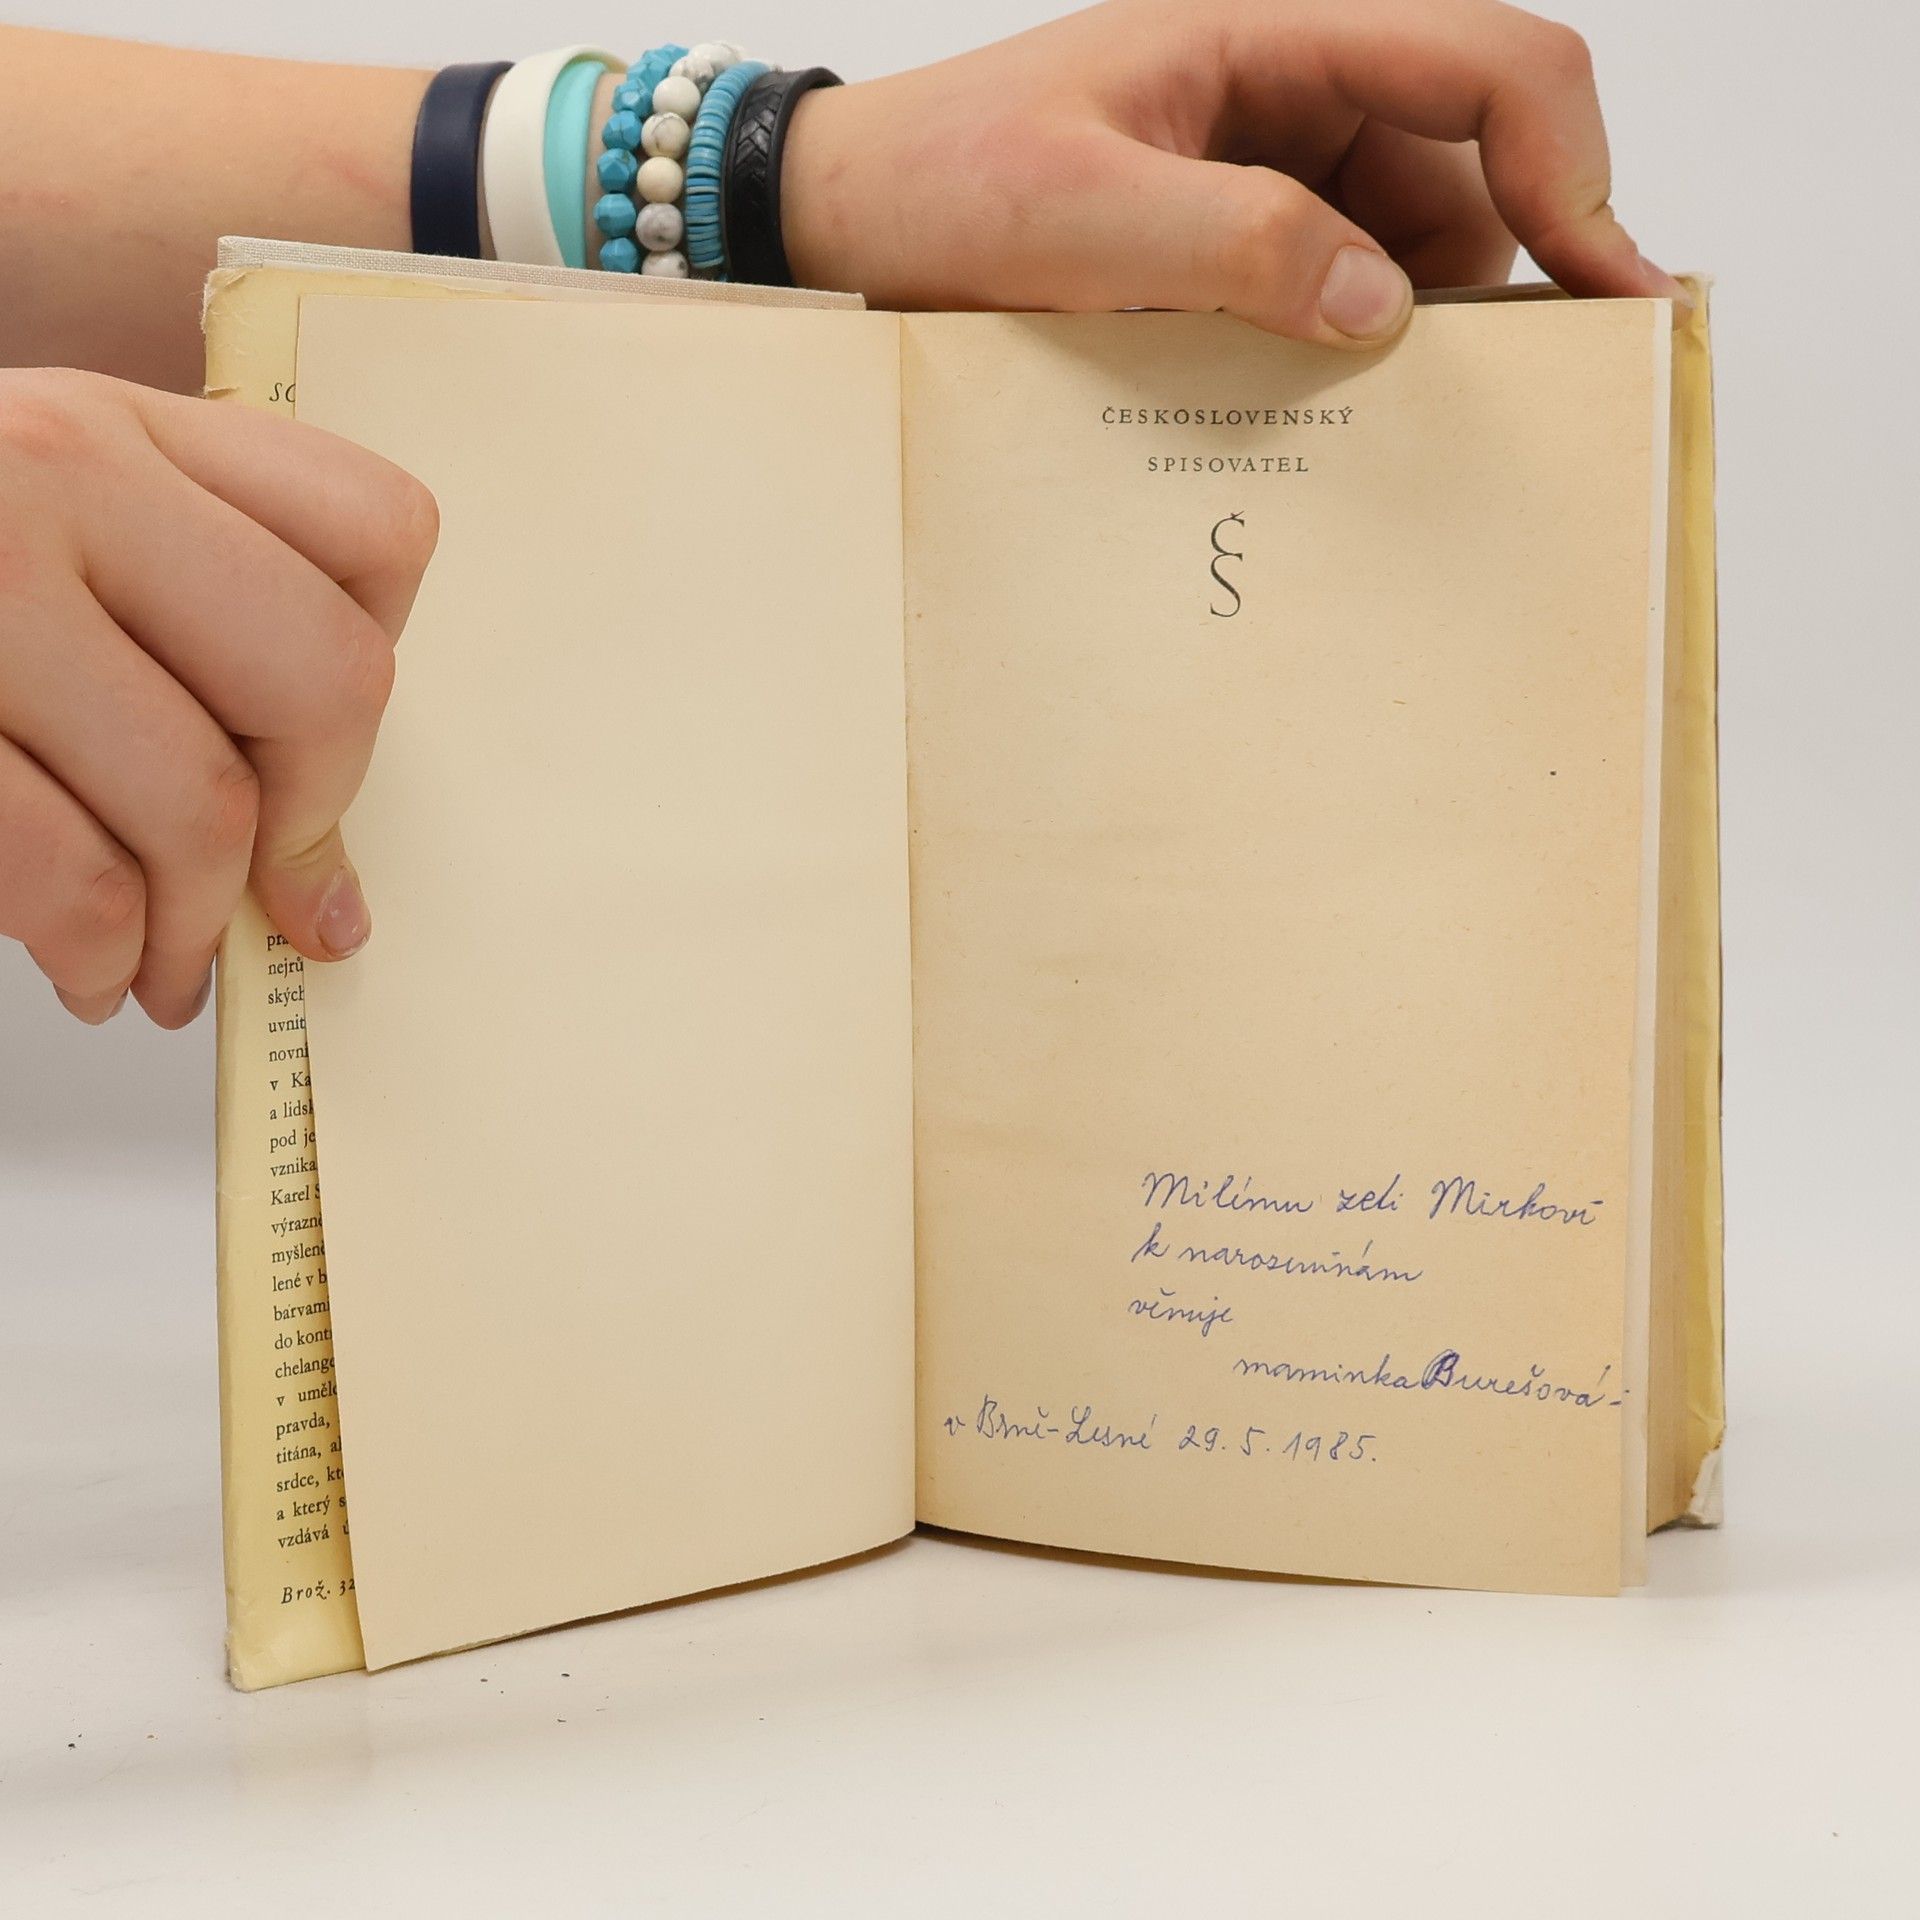 SC
nejrů
ských
uvnit
novní
v Ka
a lidsk
pod je
vznika
Karel S
výrazně
myšlene
lené v b
barvami
do kont
chelange
v uměle
pravda,
titána, al
srdce, kt
a který s
vzdává
Brož. 32
ČESKOSLOVENSKÝ
SPISOVATEL
ČS
Milému zeti Mirkovi
k narozeninám
věnuje
maminka Burešová-
v Brně-Lesné 29.5.1985.